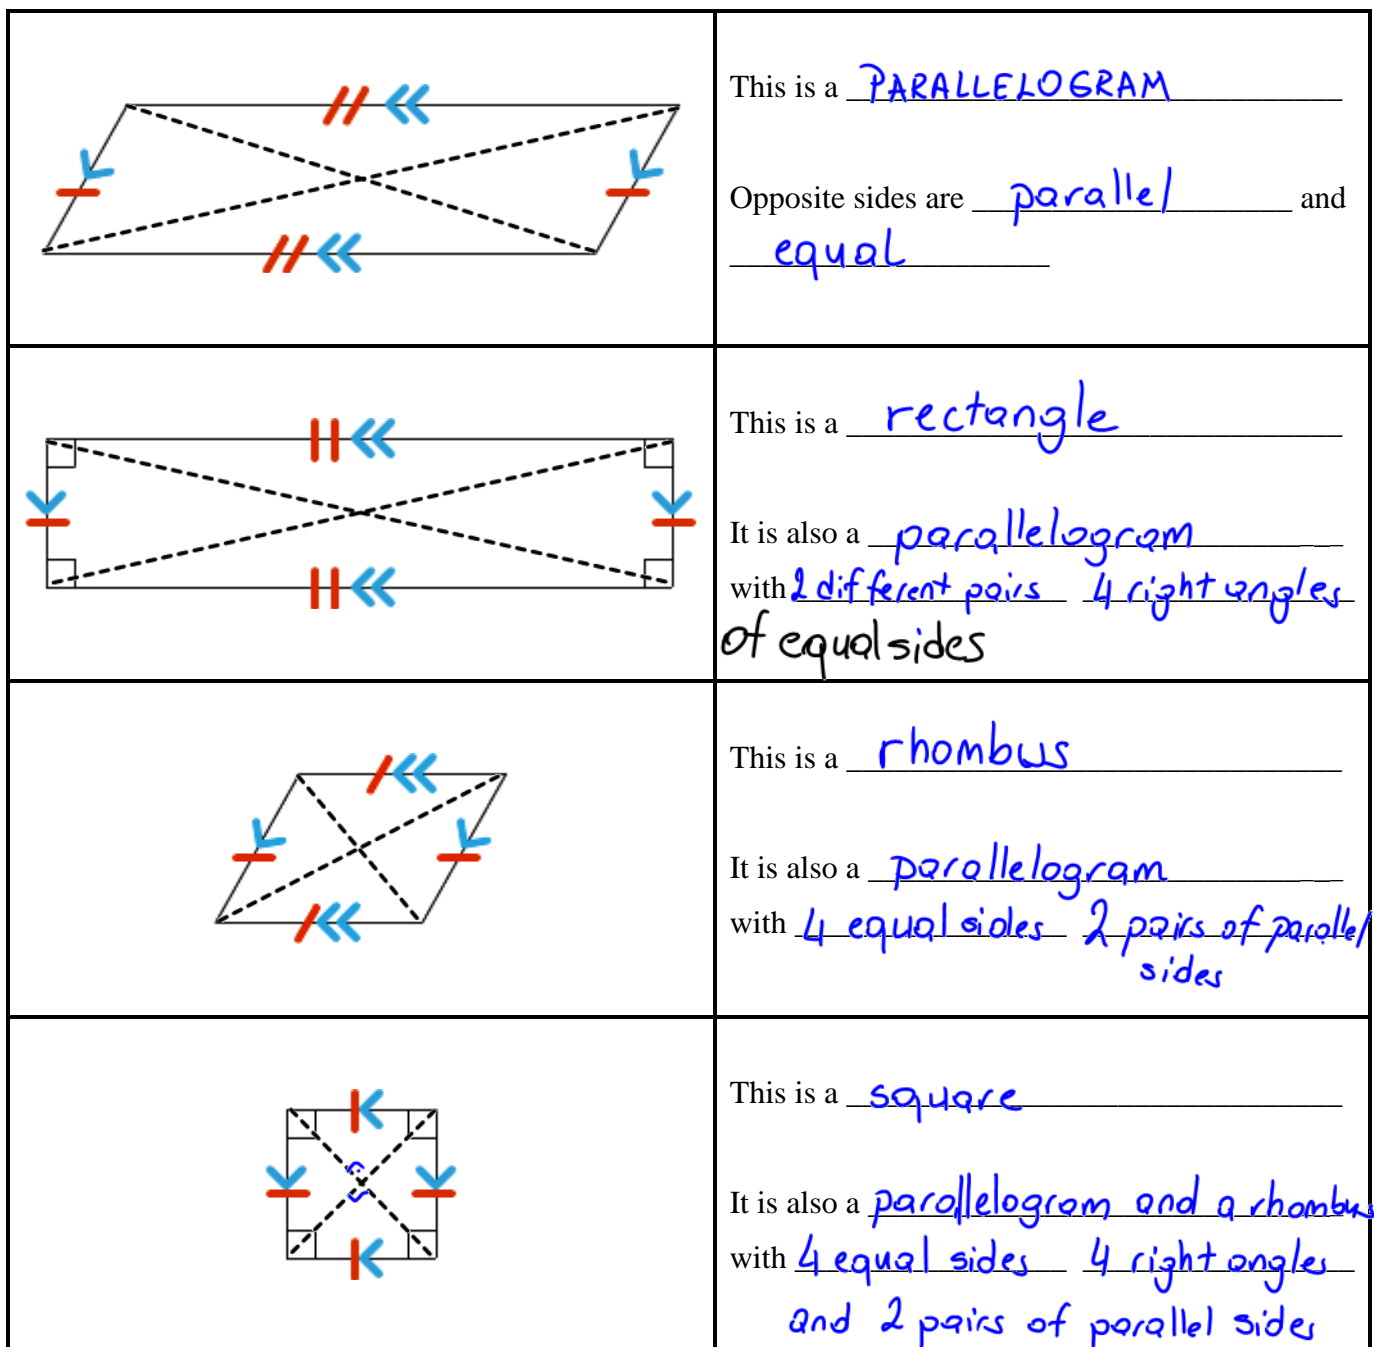 This is a PARALLELOGRAM
Opposite sides are parallel and
equal
This is a rectangle
It is also a parallelogram
with 2 different pairs 4 right angles
of equal sides
This is a rhombus
It is also a parallelogram
with 4 equal sides 2 pairs of parallel
sides
This is a square
It is also a parallelogram and a rhombus
with 4 equal sides 4 right angles
and 2 pairs of parallel sides